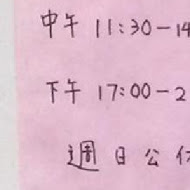 中午 11:30-14
下午 17:00-2
週日公休